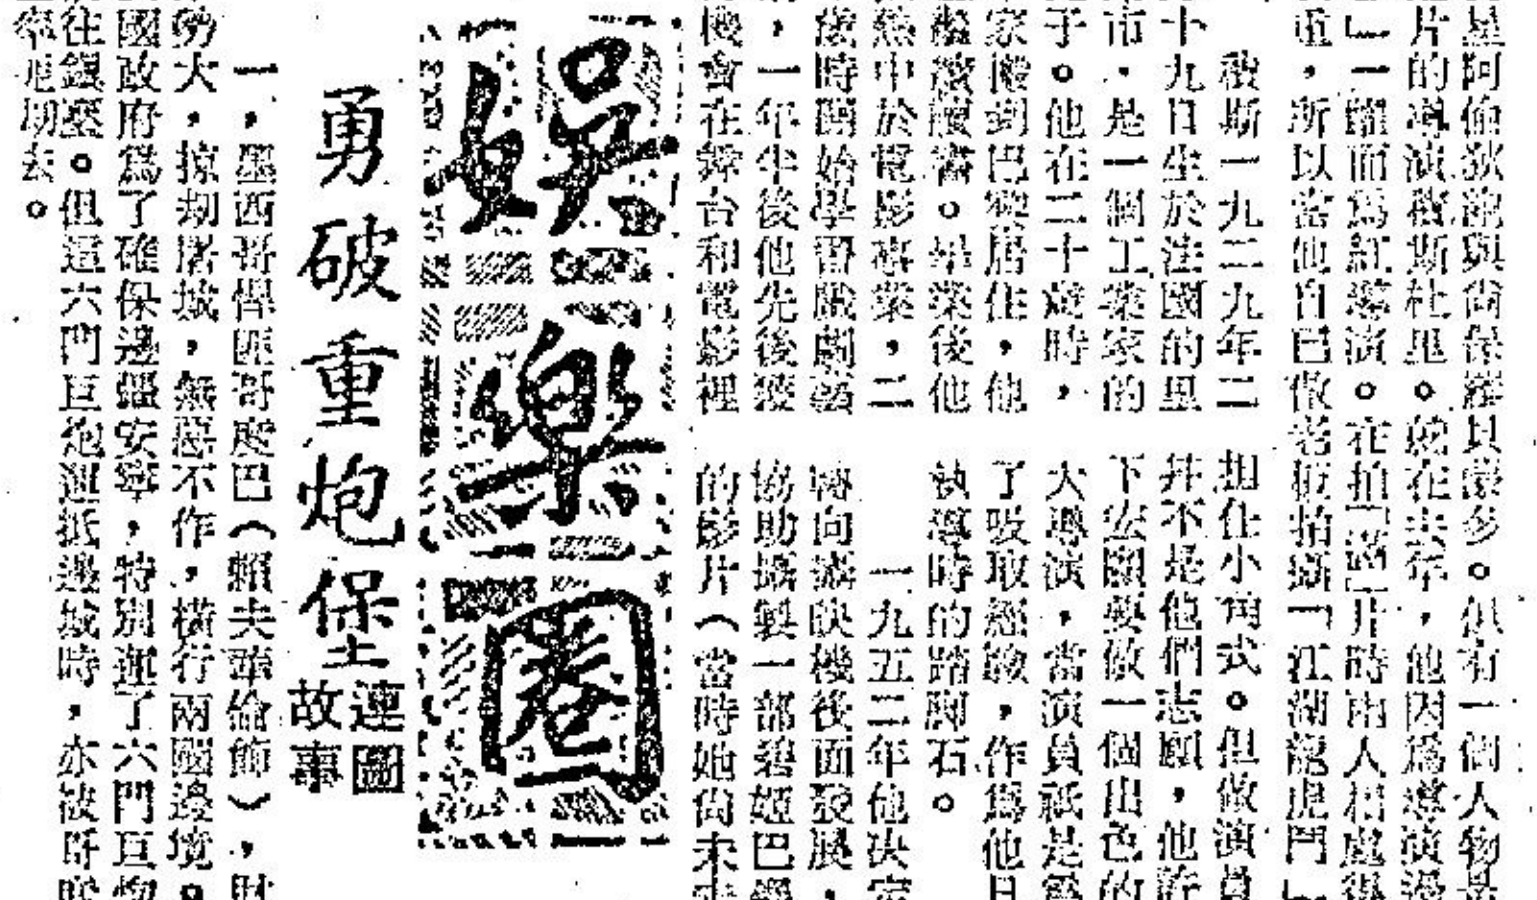 星阿倫狄龍與尚保羅貝蒙多。但有一個人物是
片的導演積斯杜里。就在去年，他因爲導演漫
」一躍而爲紅導演。在拍「 」片時兩人相處得
重，所以當他自己做老板拍攝「江湖龍虎鬥」
積斯一九二九年二
十九日生於法國的里
市，是一個工業家的
子。他在二十歲時，
家搬到巴黎居住，他
繼續讀書。畢業後他
熱中於電影事業，二
歲時開始學習戲劇藝
，一年半後他先後獲
機會在舞台和電影裡
担任小角式。但做演員
并不是他們志願，他許
下宏願要做一個出色的
大導演，當演員祇是爲
了吸取經驗，作爲他日
執導時的踏脚石。
一九五二年他决定
轉向攝映機後面發展，
協助攝製一部碧姬巴鐸
的影片（當時她尚未
娛樂圈
勇破重炮堡
連圖故事
一，墨西哥悍匪哥度巴（賴夫頭倫飾），財
勢大，掠刼屠城，無惡不作，橫行兩國邊境。
國政府爲了確保邊疆安寧，特別運了六門巨炮
往鎮壓。但這六門巨炮運抵邊城時，亦被哥度
率 刼去。